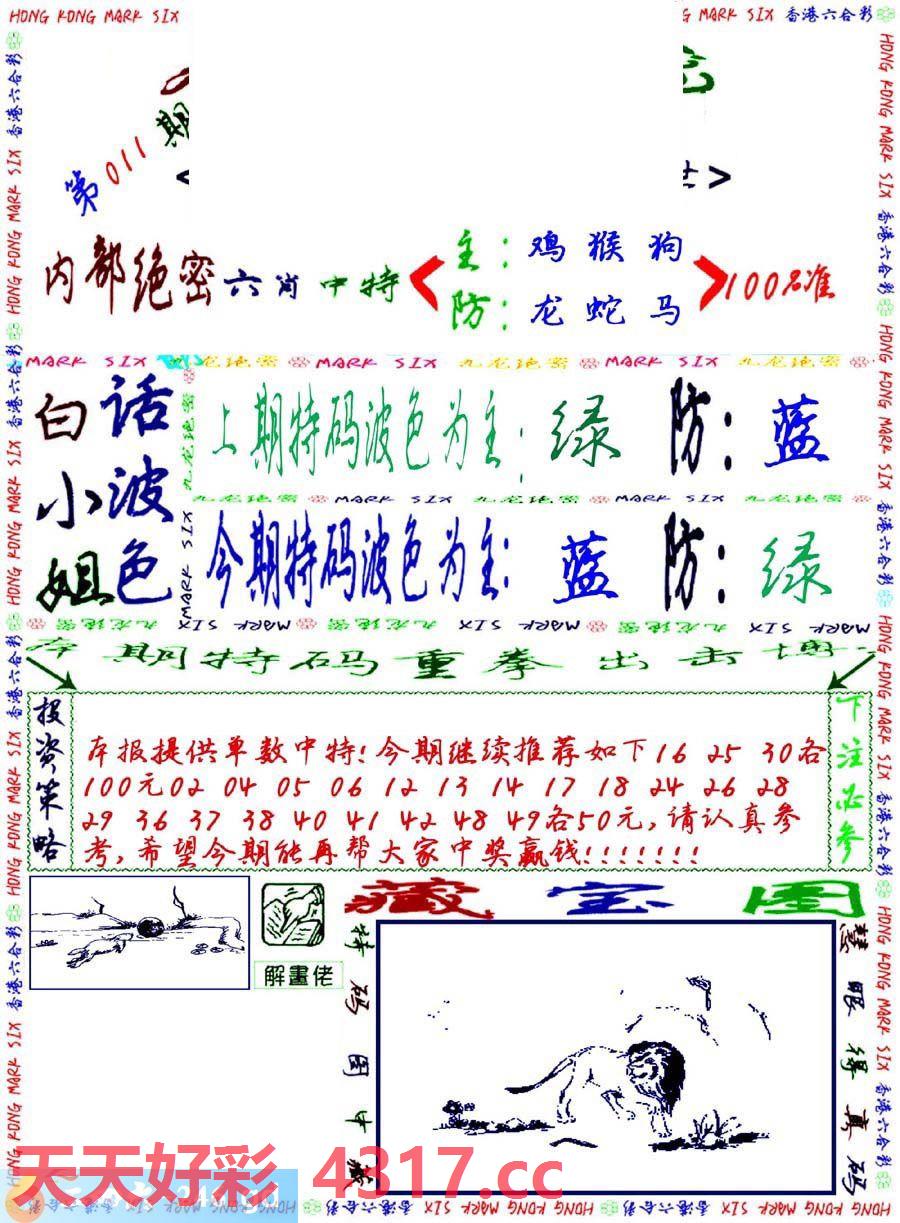 HONG KONG MARK SIX
MARK SIX 香港六合彩
第011期
内部绝密六肖中特
主：鸡猴狗
防：龙蛇马
100%准
MARK SIX 九龙绝密 MARK SIX 九龙绝密 MARK SIX 九龙绝密
白小姐
话波色
上期特码波色为主：绿 防：蓝
九龙绝密 MARK SIX 九龙绝密 MARK SIX 九龙绝密
今期特码波色为主：蓝 防：绿
期特码重拳出击
投资策略
本报提供单数中特!今期继续推荐如下16 25 30各
100元02 04 05 06 12 13 14 17 18 24 26 28
29 36 37 38 40 41 42 48 49各50元,请认真参
考,希望今期能再帮大家中奖赢钱!!!!!!!
下注必参
藏宝图
解畫佬
特码图中藏
慧眼得真码
天天好彩 4317.cc